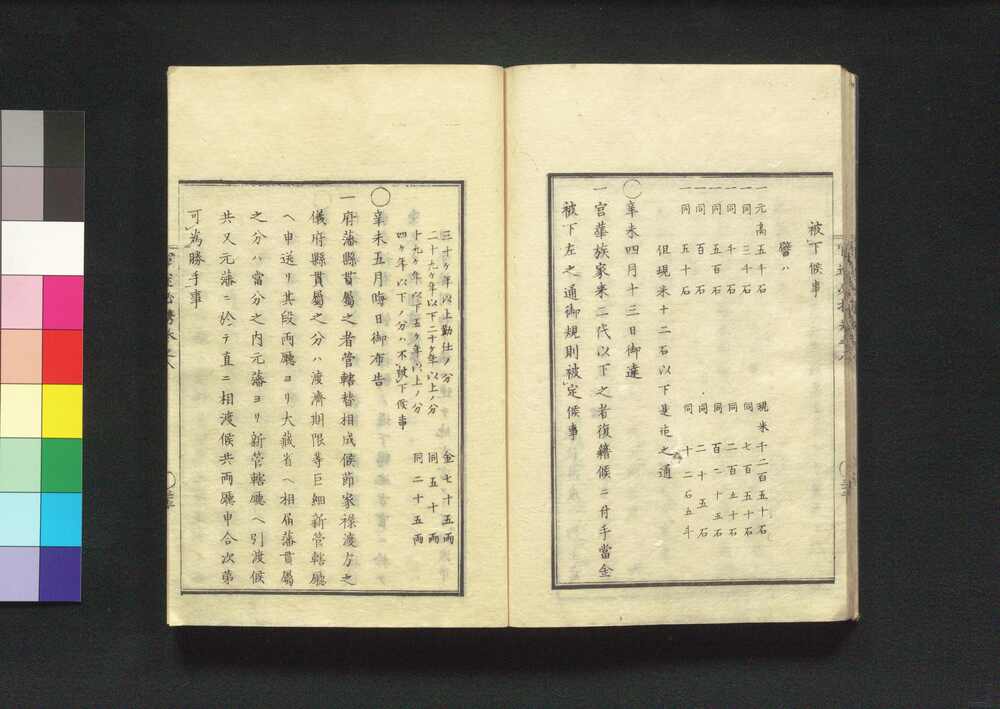 被下候事
譬ハ
一元高五千石　現米千二百五十石
一同三千石　同七百五十石
一同千石　同二百五十石
一同五百石　同百二十五石
一同百石　同二十五石
一同五十石　同十二石五斗
但現米十二石以下是迄之通
○辛未四月十三日御達
一宮華族家来二代以下之者復籍候ニ付手當金
被下左之通御規則被定候事
三十ケ年以上勤仕ノ分　金七十五両
二十九ケ年以下二十ケ年以上ノ分　同五十両
十九ケ年以下五ケ年以上ノ分　同二十五両
四ケ年以下ノ分ハ不被下候事
○辛未五月晦日御布告
一府藩縣貫屬之者管轄替相成候節家祿渡方之
儀府縣貫屬之分ハ渡濟期限等巨細新管轄廳
ヘ申送リ其段両廳ヨリ大藏省ヘ相届藩貫屬
之分ハ當分之内元藩ヨリ新管轄廳ヘ引渡候
共又元藩ニ於テ直ニ相渡候共両廳申合次第
可為勝手事